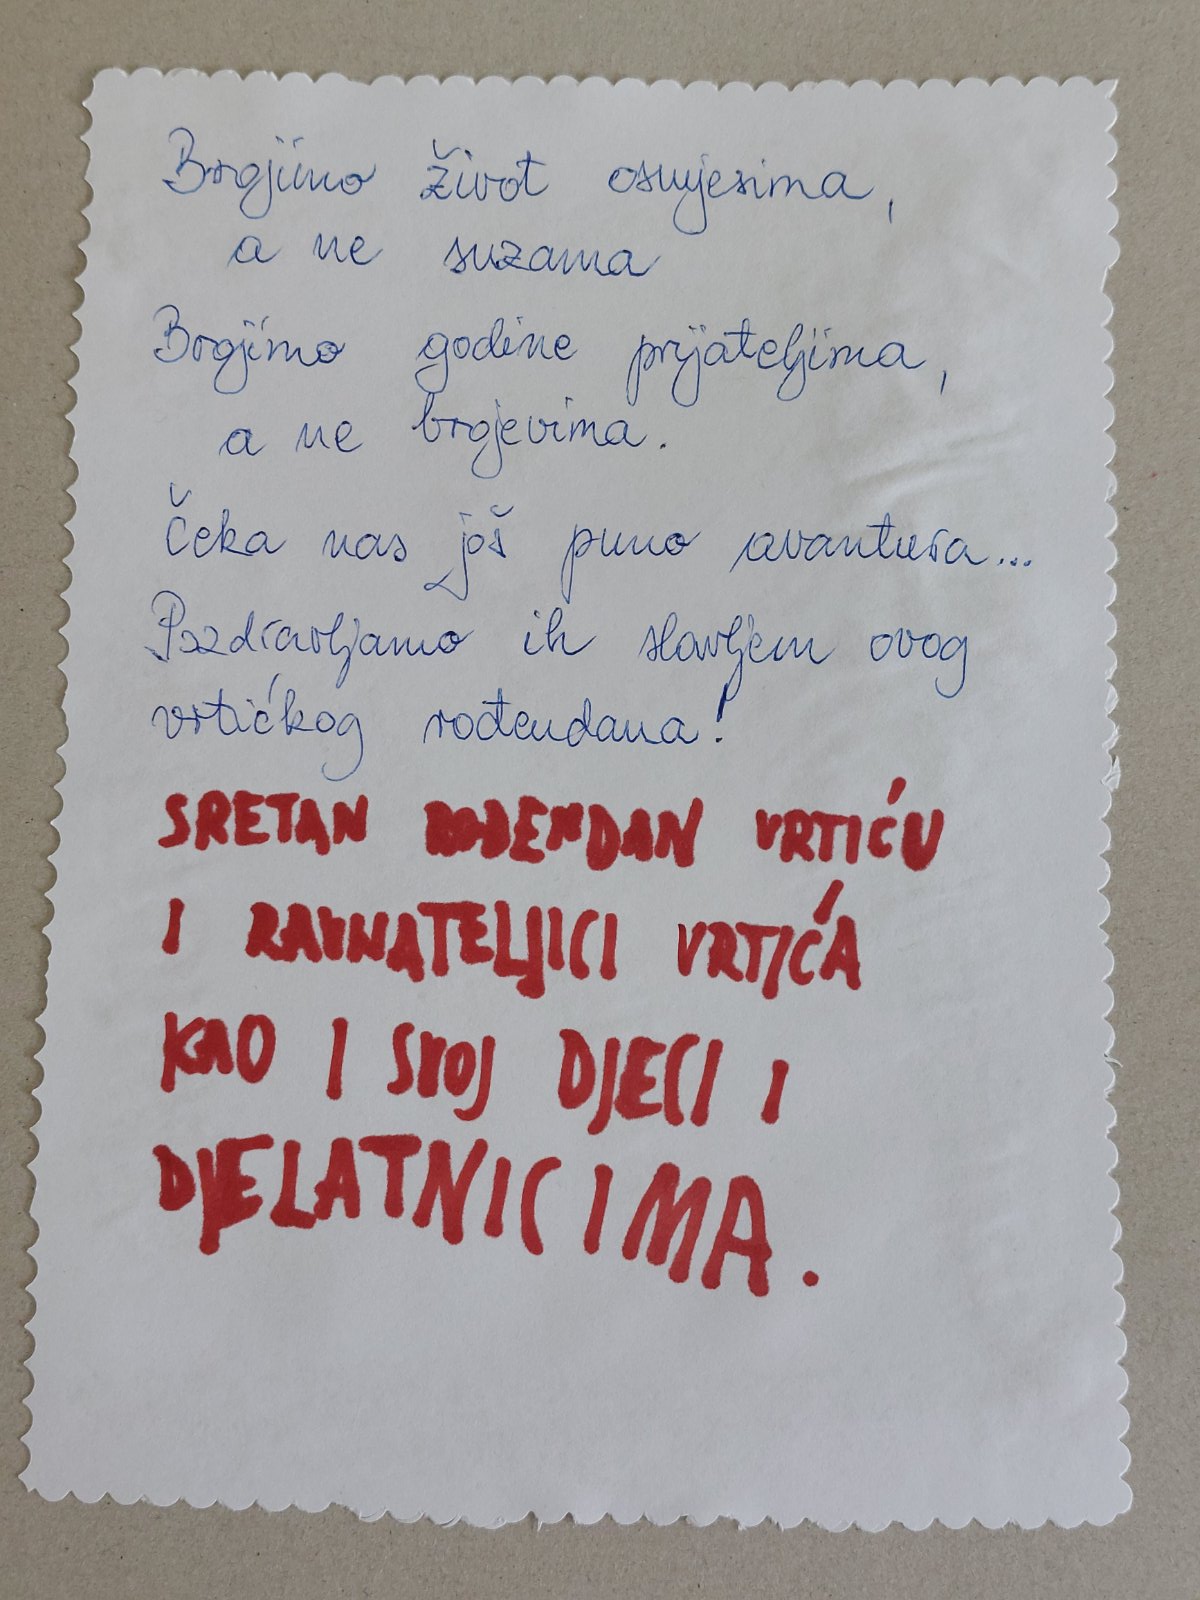 Brojimo život osmjesima,
a ne suzama
Brojimo godine prijateljima,
a ne brojevima.
Čeka nas još puno avantura...
Pozdravljamo ih slavljem ovog
vrtićkog rođendana!
SRETAN ROĐENDAN VRTIĆU
I RAVNATELJICI VRTIĆA
KAO I SVOJ DJECI I
DJELATNICIMA.